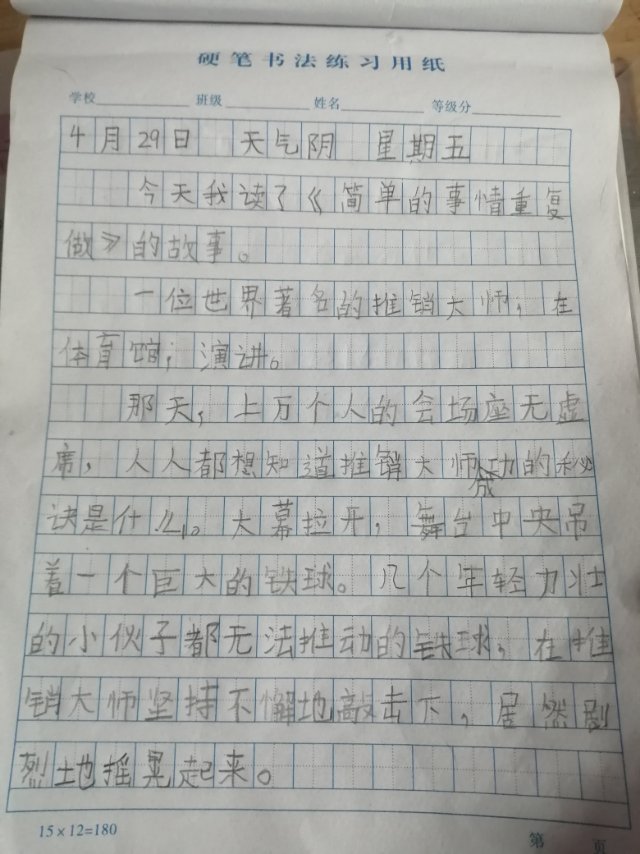 硬笔书法练习用纸
学校 班级 姓名 等级分
4月29日 天气阴 星期五
今天我读了《简单的事情重复
做》的故事。
一位世界著名的推销大师，在
体育馆，演讲。
那天，上万个人的会场座无虚
席，人人都想知道推销大师成功的秘
诀是什么。大幕拉开，舞台中央吊
着一个巨大的铁球。几个年轻力壮
的小伙子都无法推动的铁球，在推
销大师坚持不懈地敲击下，居然剧
烈地摇晃起来。
15×12=180
第 页